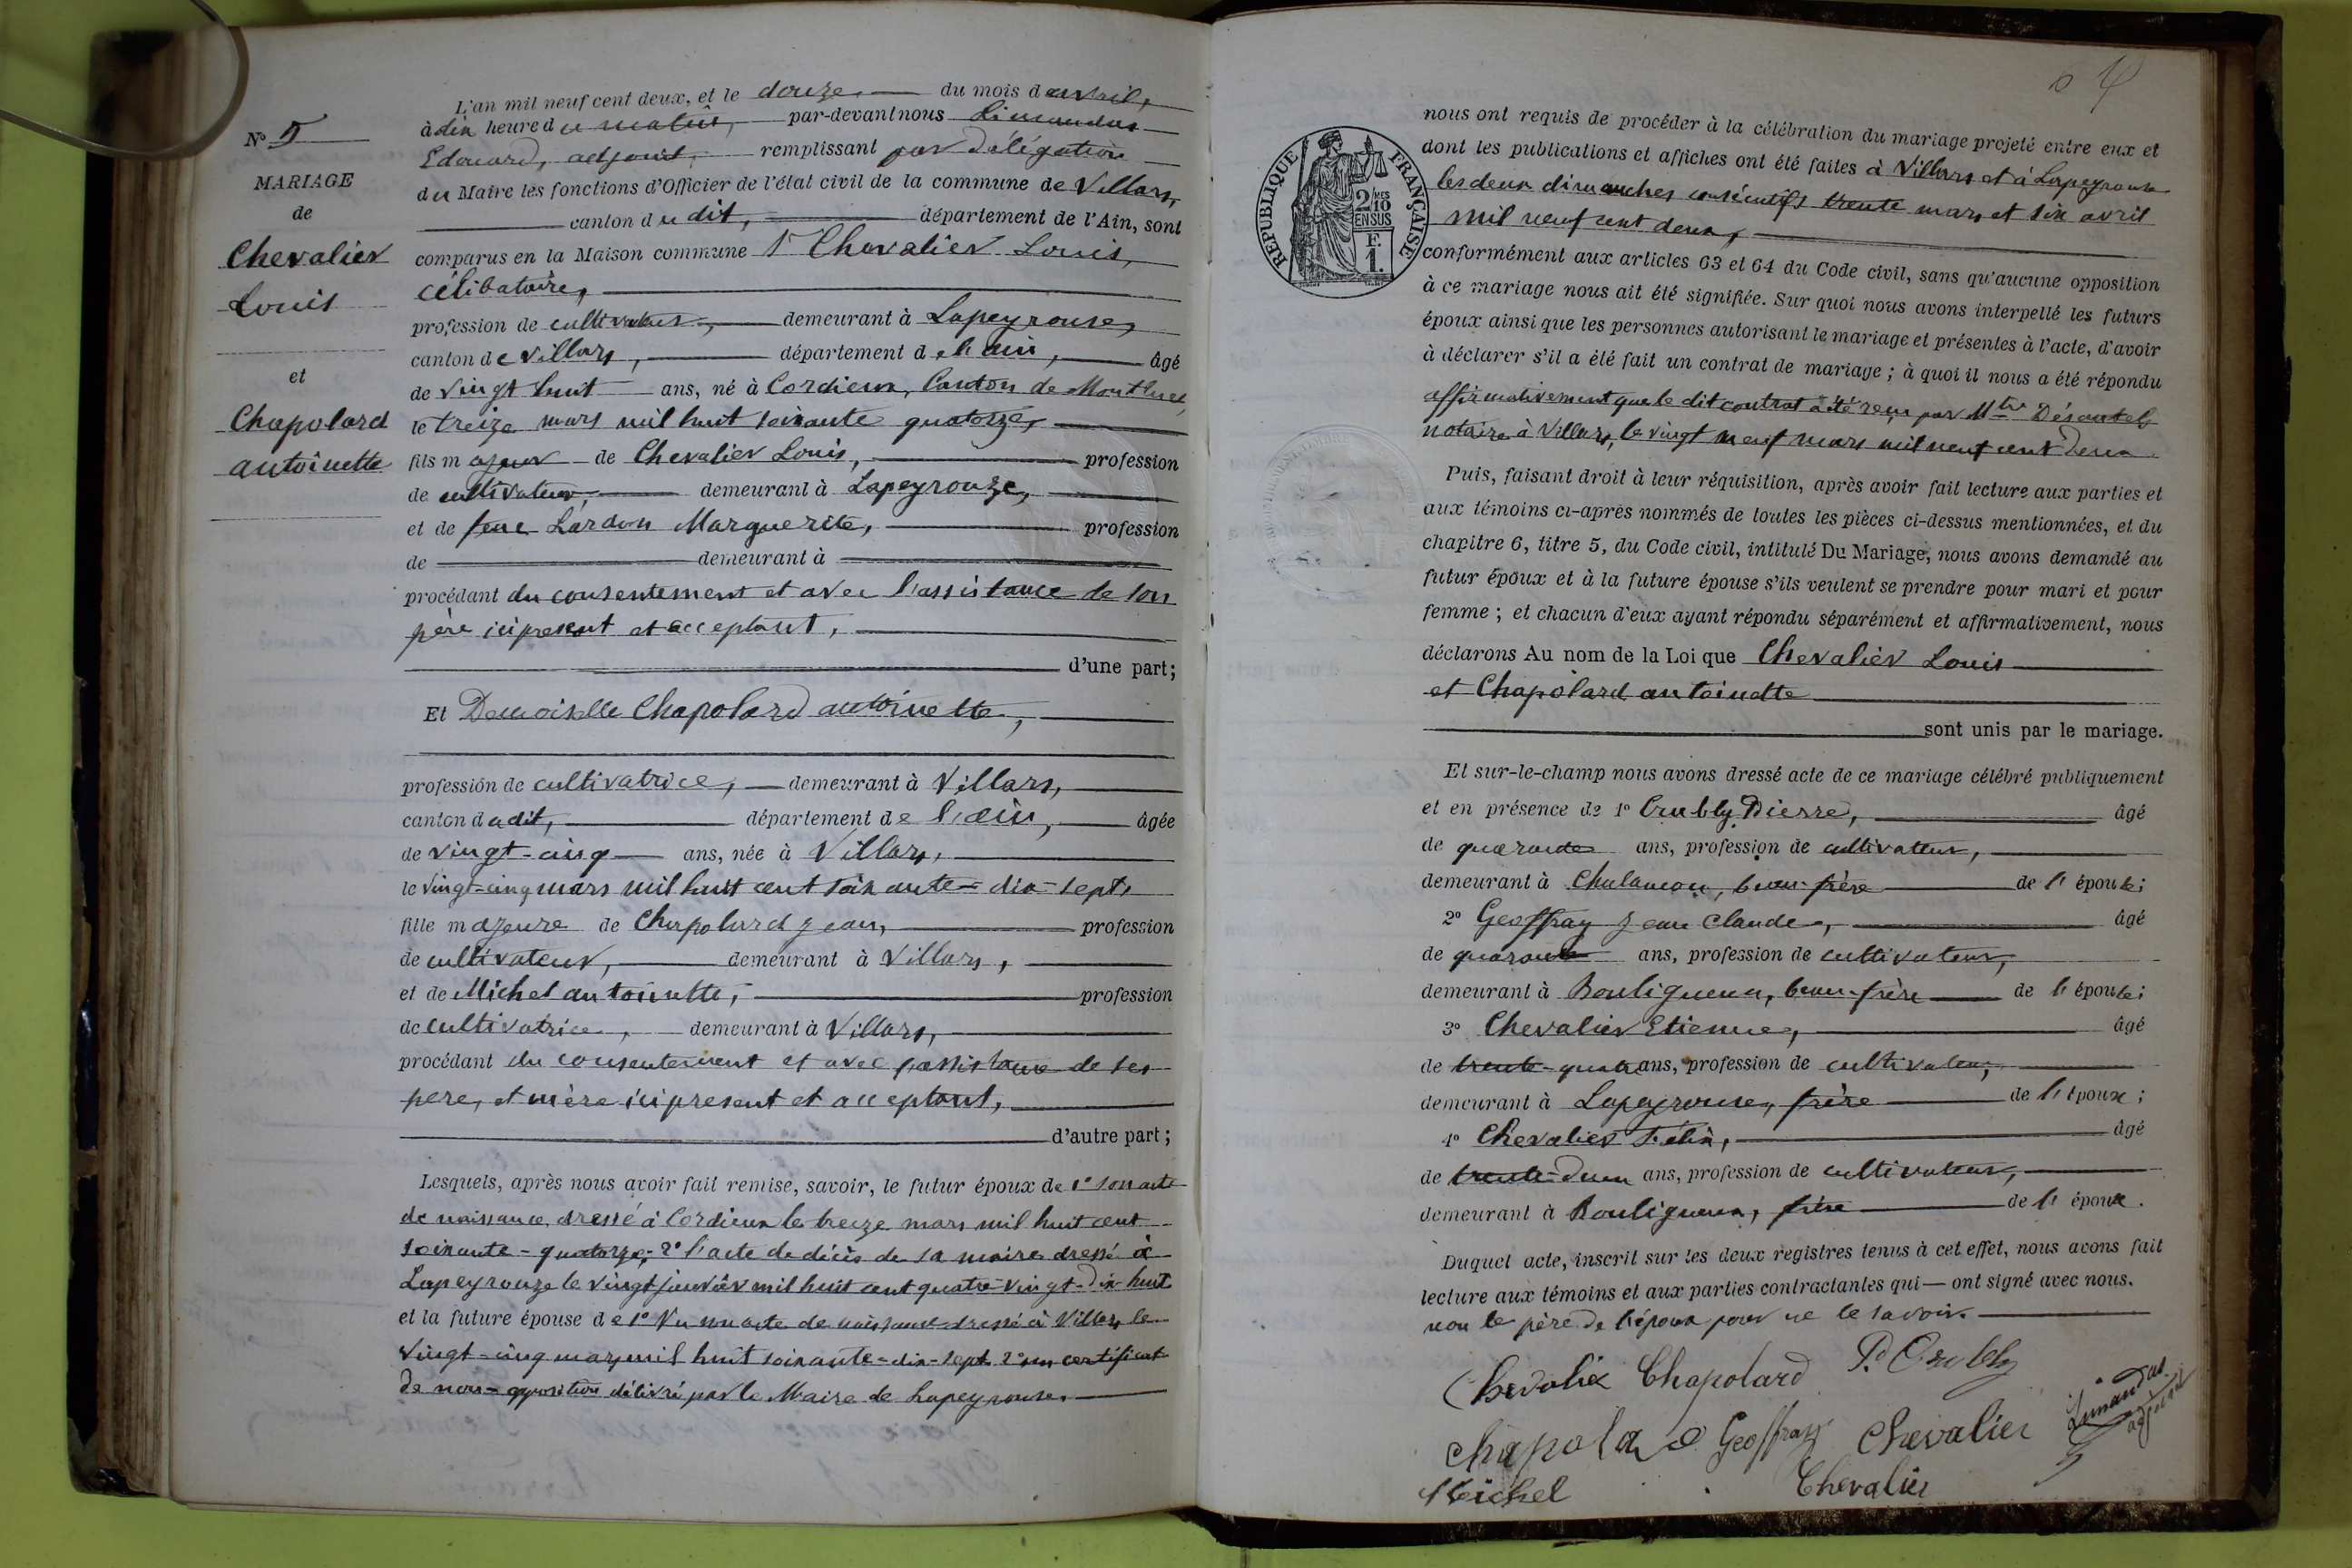 L'an mil neuf cent deux, et le douze du mois d'avril,
à dix heure du matin, par-devant nous Limandas
Edouard, adjoint, remplissant par délégation
du Maire les fonctions d'Officier de l'état civil de la commune de Villars,
canton dudit, département de l'Ain, sont
comparus en la Maison commune 1° Chevalier Louis,
célibataire,
profession de cultivateur, demeurant à Lapeyrouse,
canton de Villars, département de l'ain, âgé
de vingt huit ans, né à Cordieux, Canton de Montluel,
le treize mars mil huit soixante quatorze,
fils majeur de Chevalier Louis, profession
de cultivateur, demeurant à Lapeyrouze,
et de feue Lardon Marguerite, profession
de demeurant à
procédant du consentement et avec l'assistance de son
père ici present et acceptant,
d'une part;
Et Demoiselle Chapolard antoinette,
profession de cultivatrice, demeurant à Villars,
canton dudit, département de l'ain, âgée
de vingt-cinq ans, née à Villars,
le vingt-cinq mars mil huit cent soixante-dix-sept,
fille majeure de Chapolard Jean, profession
de cultivateur, demeurant à Villars,
et de Michel antoinette, profession
de cultivatrice, demeurant à Villars,
procédant du consentement et avec l'assistance de ses
pere, et mère ici present et acceptant,
d'autre part;
Lesquels, après nous avoir fait remise, savoir, le futur époux de 1° son acte
de naissance, dressé à Cordieux le treize mars mil huit cent
soixante-quatorze, 2° l'acte de décès de sa maire dressé à
Lapeyrouze le vingt janvier mil huit cent quatre-vingt-dix huit
et la future épouse de 1° Vu son acte de naissance dressé à Villars le
vingt-cinq mars mil huit soixante-dix-sept 2° un certificat
de non-opposition délivré par le Maire de Lapeyrouse.
N° 5
MARIAGE
de
Chevalier
Louis
et
Chapolard
antoinette
nous ont requis de procéder à la célébration du mariage projeté entre eux et
dont les publications et affiches ont été faites à Villars et à Lapeyrouse
les deux dimanches consécutifs trente mars et six avril
mil neuf cent deux,
conformément aux articles 63 et 64 du Code civil, sans qu'aucune opposition
à ce mariage nous ait été signifiée. Sur quoi nous avons interpellé les futurs
époux ainsi que les personnes autorisant le mariage et présentes à l'acte, d'avoir
à déclarer s'il a été fait un contrat de mariage; à quoi il nous a été répondu
affirmativement que le dit contrat a été reçu par Mtre Désautels
notaire à Villars, le vingt neuf mars mil neuf cent deux
Puis, faisant droit à leur réquisition, après avoir fait lecture aux parties et
aux témoins ci-après nommés de toutes les pièces ci-dessus mentionnées, et du
chapitre 6, titre 5, du Code civil, intitulé Du Mariage, nous avons demandé au
futur époux et à la future épouse s'ils veulent se prendre pour mari et pour
femme; et chacun d'eux ayant répondu séparément et affirmativement, nous
déclarons Au nom de la Loi que Chevalier Louis
et Chapolard antoinette
sont unis par le mariage.
Et sur-le-champ nous avons dressé acte de ce mariage célébré publiquement
et en présence de 1° Crubly Pierre, âgé
de quarante ans, profession de cultivateur,
demeurant à Chalamon, beau-frère de l'épouse;
2° Geoffray Jean Claude, âgé
de quarante ans, profession de cultivateur,
demeurant à Bouligneux, beau-frère de l'épouse;
3° Chevalier Etienne, âgé
de trente-quatre ans, profession de cultivateur,
demeurant à Lapeyrouse, frère de l'époux;
4° Chevalier Félix, âgé
de trente-deux ans, profession de cultivateur,
demeurant à Bouligneux, frère de l'époux.
Duquel acte, inscrit sur les deux registres tenus à cet effet, nous avons fait
lecture aux témoins et aux parties contractantes qui — ont signé avec nous.
non le père de l'époux pour ne le savoir.
Chevalier Chapolard P. Crubly
Chapolard Geoffray Chevalier Limandas adjoint
Michel Chevalier
RÉPUBLIQUE FRANÇAISE
2/10 MES
EN SUS
F.
1.